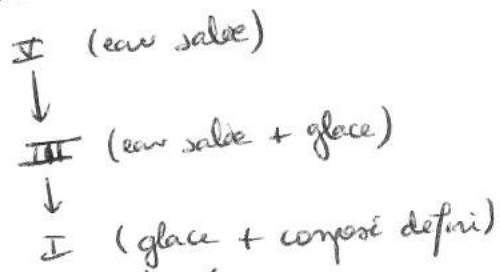 V (eau salée)
↓
III (eau salée + glace)
↓
I (glace + composé défini)